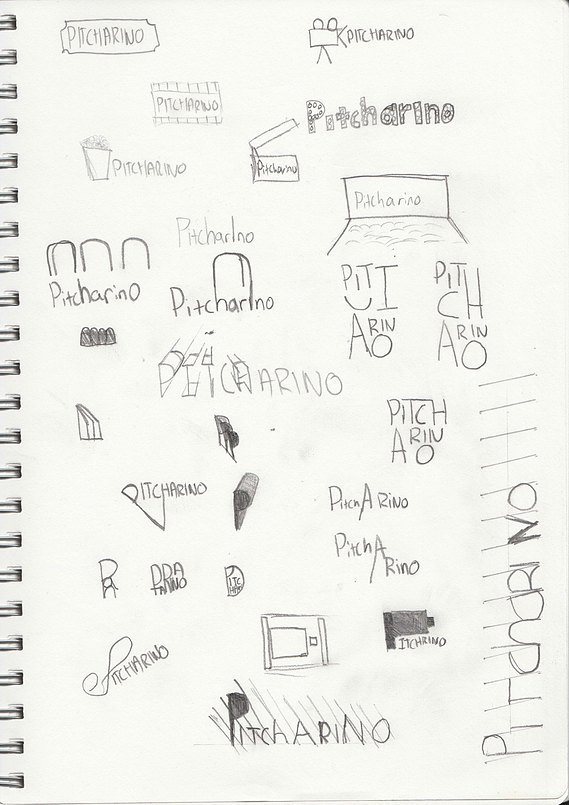 PITCHARINO
PITCHARINO
PITCHARINO
Pitcharino
PITCHARINO
Pitcharino
Pitcharino
PitcharIno
Pitcharino
PitcharIno
PIT
ARIN
O
PITCH
ARIN
O
PITCHARINO
PITCH
ARIN
O
PITCHARINO
PitchA Rino
PitchA
Rino
PITCHARINO
PITCHARINO
ITCHRINO
PITCHARINO
PITCHARINO